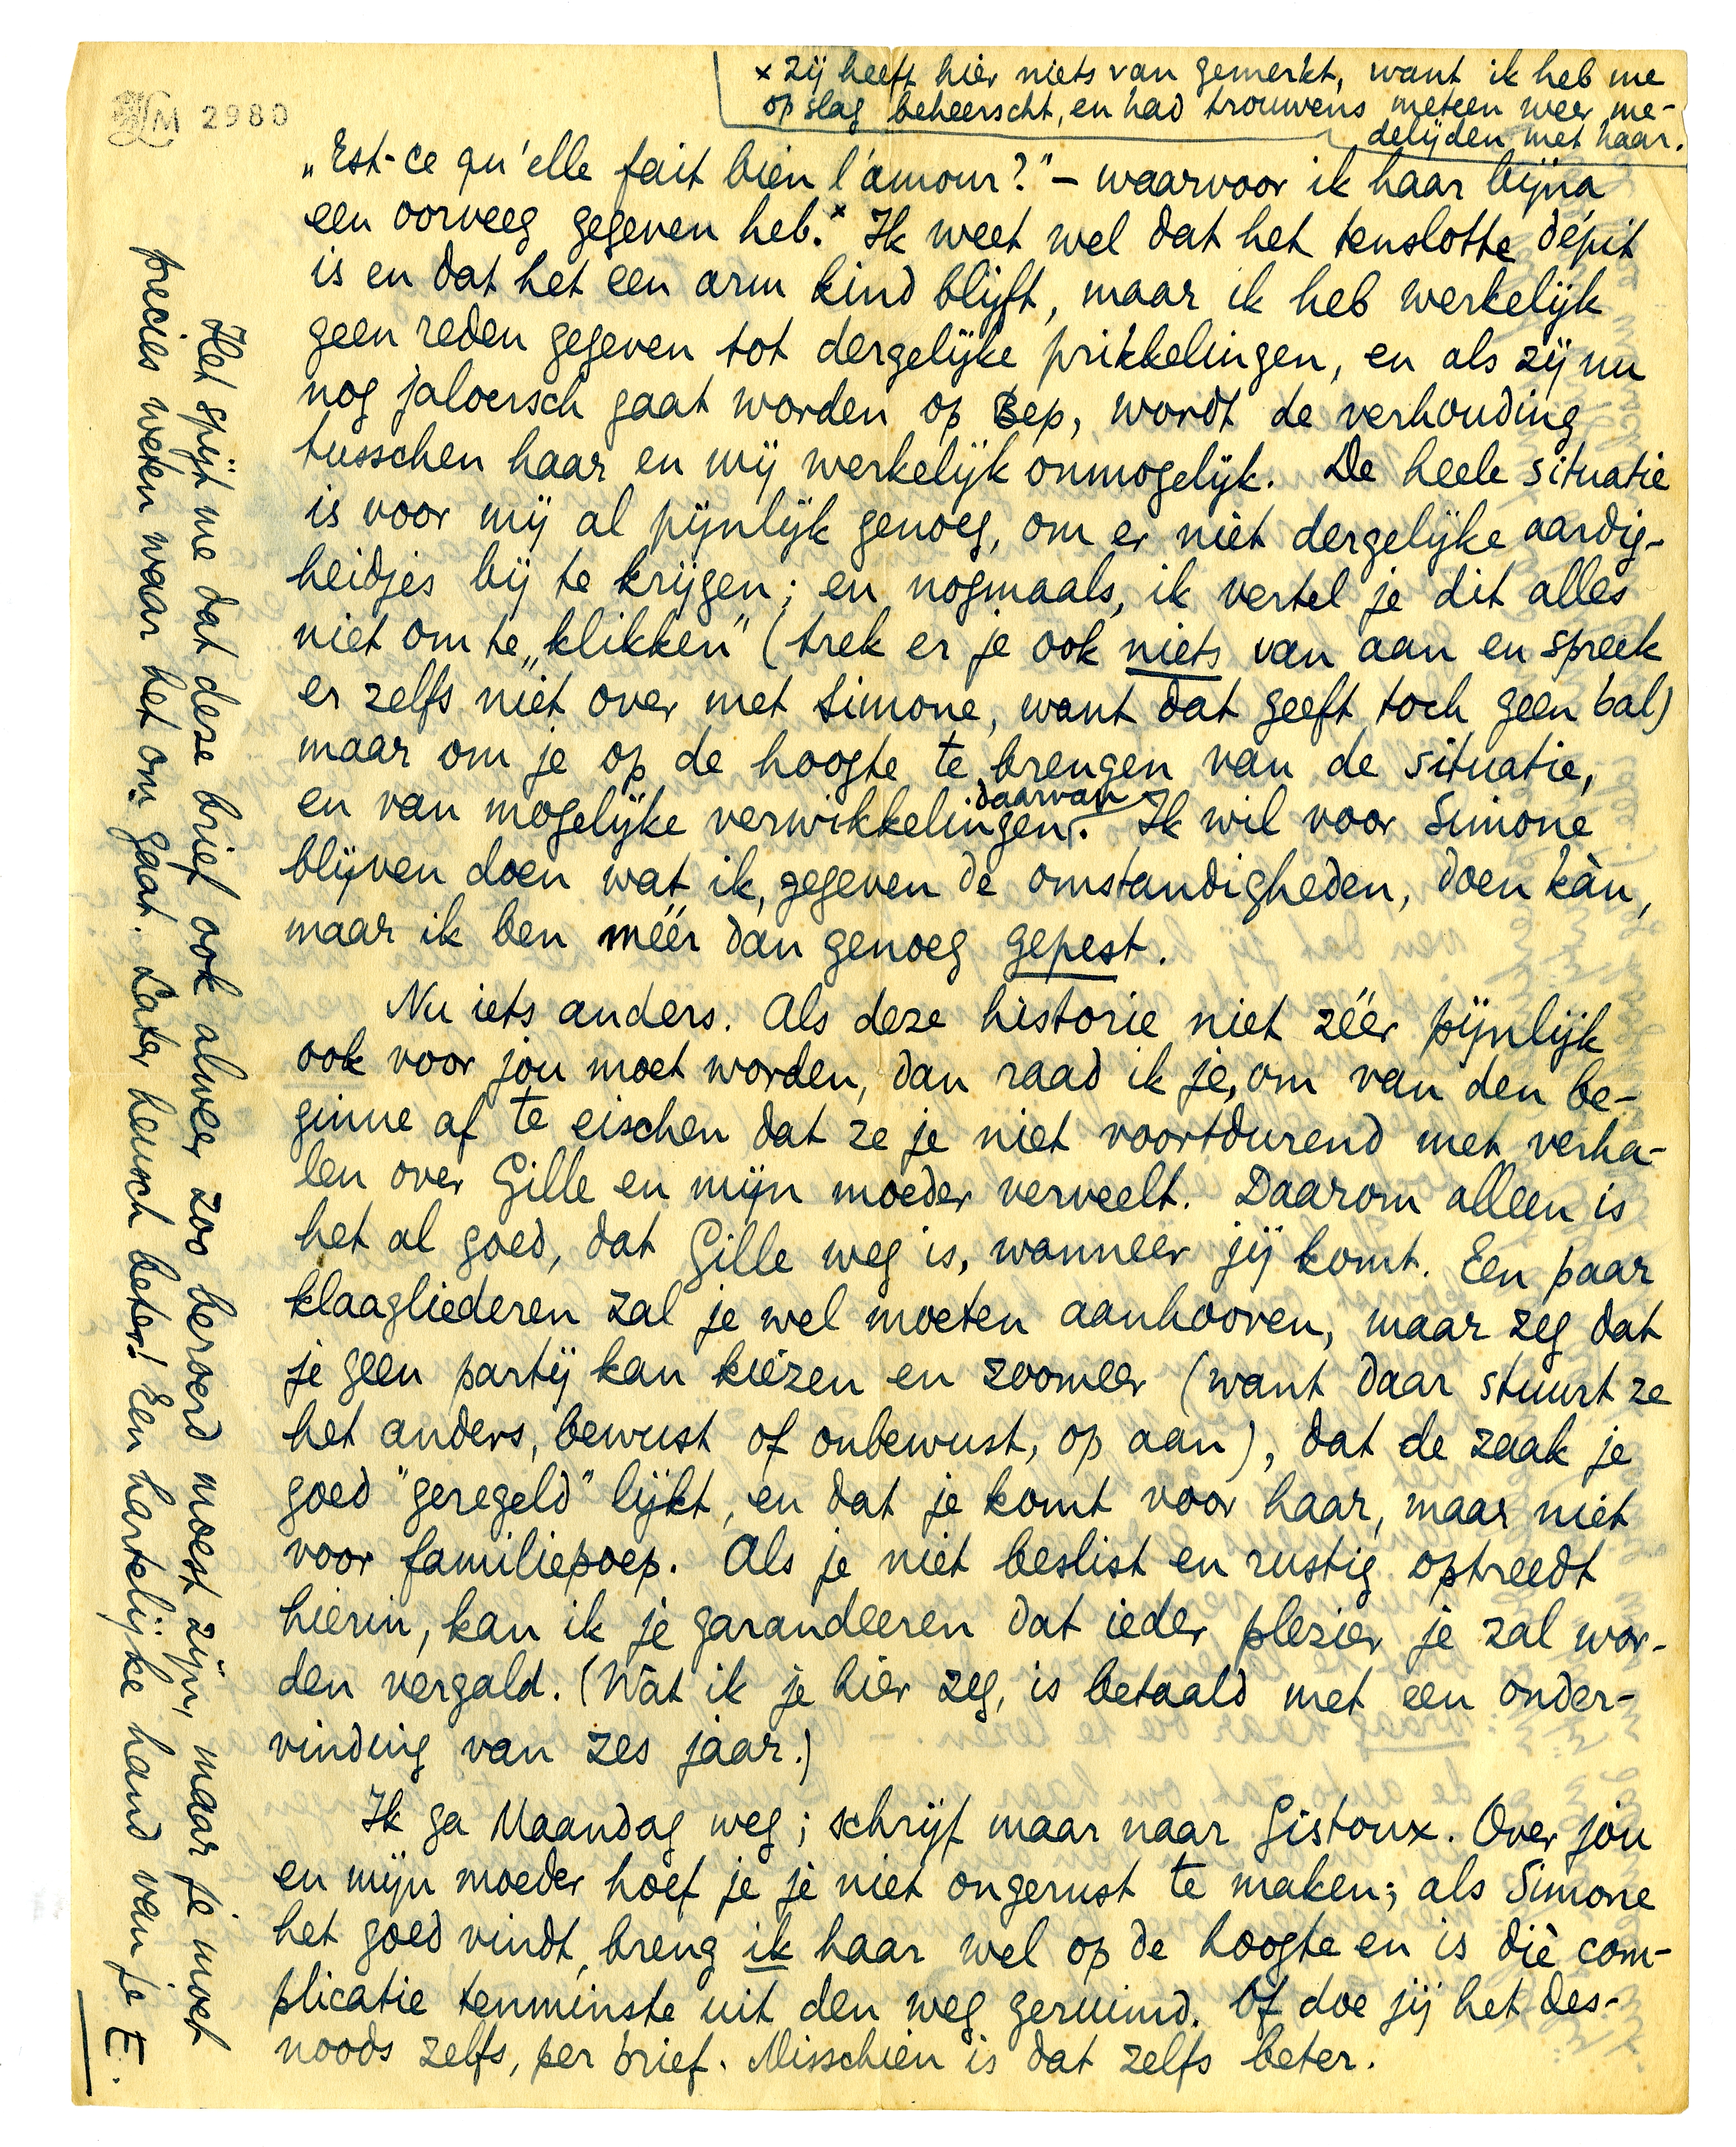 M 2980
x Zij heeft hier niets van gemerkt, want ik heb me
op slag beheerscht, en had trouwens meteen weer me-
delijden met haar.
„Est-ce qu'elle fait bien l'amour?" — waarvoor ik haar bijna
een oorveeg gegeven heb.x Ik weet wel dat het tenslotte dépit
is en dat het een arm kind blijft, maar ik heb werkelijk
geen reden gegeven tot dergelijke prikkelingen, en als zij nu
nog jaloersch gaat worden op Bep, wordt de verhouding
tusschen haar en mij werkelijk onmogelijk. De heele situatie
is voor mij al pijnlijk genoeg, om er niet dergelijke aardig-
heidjes bij te krijgen; en nogmaals, ik vertel je dit alles
niet om te „klikken" (trek er je ook niets van aan en spreek
er zelfs niet over met Simone, want dat geeft toch geen bal)
maar om je op de hoogte te brengen van de situatie,
en van mogelijke verwikkelingen daarvan. Ik wil voor Simone
blijven doen wat ik, gegeven de omstandigheden, doen kàn,
maar ik ben méér dan genoeg gepest.
Nu iets anders. Als deze historie niet zéér pijnlijk
ook voor jou moet worden, dan raad ik je, om van den be-
ginne af te eischen dat ze je niet voortdurend met verha-
len over Gille en mijn moeder verveelt. Daarom alleen is
het al goed, dat Gille weg is, wanneer jij komt. Een paar
klaagliederen zal je wel moeten aanhooren, maar zeg dat
je geen partij kan kiezen en zoomeer (want daar stuurt ze
het anders, bewust of onbewust, op aan), dat de zaak je
goed "geregeld" lijkt, en dat je komt voor haar, maar niet
voor familiepoep. Als je niet beslist en rustig optreedt
hierin, kan ik je garandeeren dat ieder plezier je zal wor-
den vergald. (Wàt ik je hier zeg, is betaald met een onder-
vinding van zes jaar.)
Ik ga Maandag weg; schrijf maar naar Gistoux. Over jou
en mijn moeder hoef je je niet ongerust te maken; als Simone
het goed vindt, breng ik haar wel op de hoogte en is dìe com-
plicatie tenminste uit den weg geruimd. Of doe jij het des-
noods zelfs, per brief. Misschien is dat zelfs beter.
Het spijt me dat deze brief ook alweer zoo beroerd moest zijn, maar je moet
precies weten waar het om gaat. Later heusch beter! Een hartelijke hand van je E.